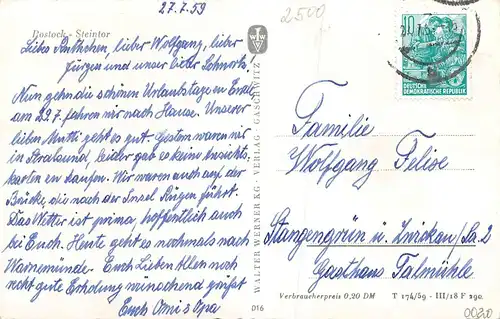 27.7.59
2500
Rostock - Steintor
Liebes Änthchen, lieber Wolfgang, lieber
Jürgen und unser lieber
Nun gehn die schönen Urlaubstage zu Ende
am 29.7. fahren wir nach Hause. Unserer
lieben Mutti geht es gut. Gestern waren wir
in Stralsund, leider gab es keine Ansichts,
karten zu kaufen. Wir waren auch auf der
Brücke, die nach der Insel Rügen führt.
Das Wetter ist prima, hoffentlich auch
bei Euch. Heute geht es nochmals nach
Warnemünde. Euch Lieben Allen noch
recht gute Erholung wünschend grüßt
Euch Omi & Opa
WALTER WERNER KG · VERLAG · GASCHWITZ
D16
10
DEUTSCHE
DEMOKRATISCHE REPUBLIK
Familie
Wolfgang Felise
Stangengrün ü. Zwickau/Sa. 2
Gasthaus Talmühle
Verbraucherpreis 0,20 DM T 174/59 - III/18 F 290.
0020